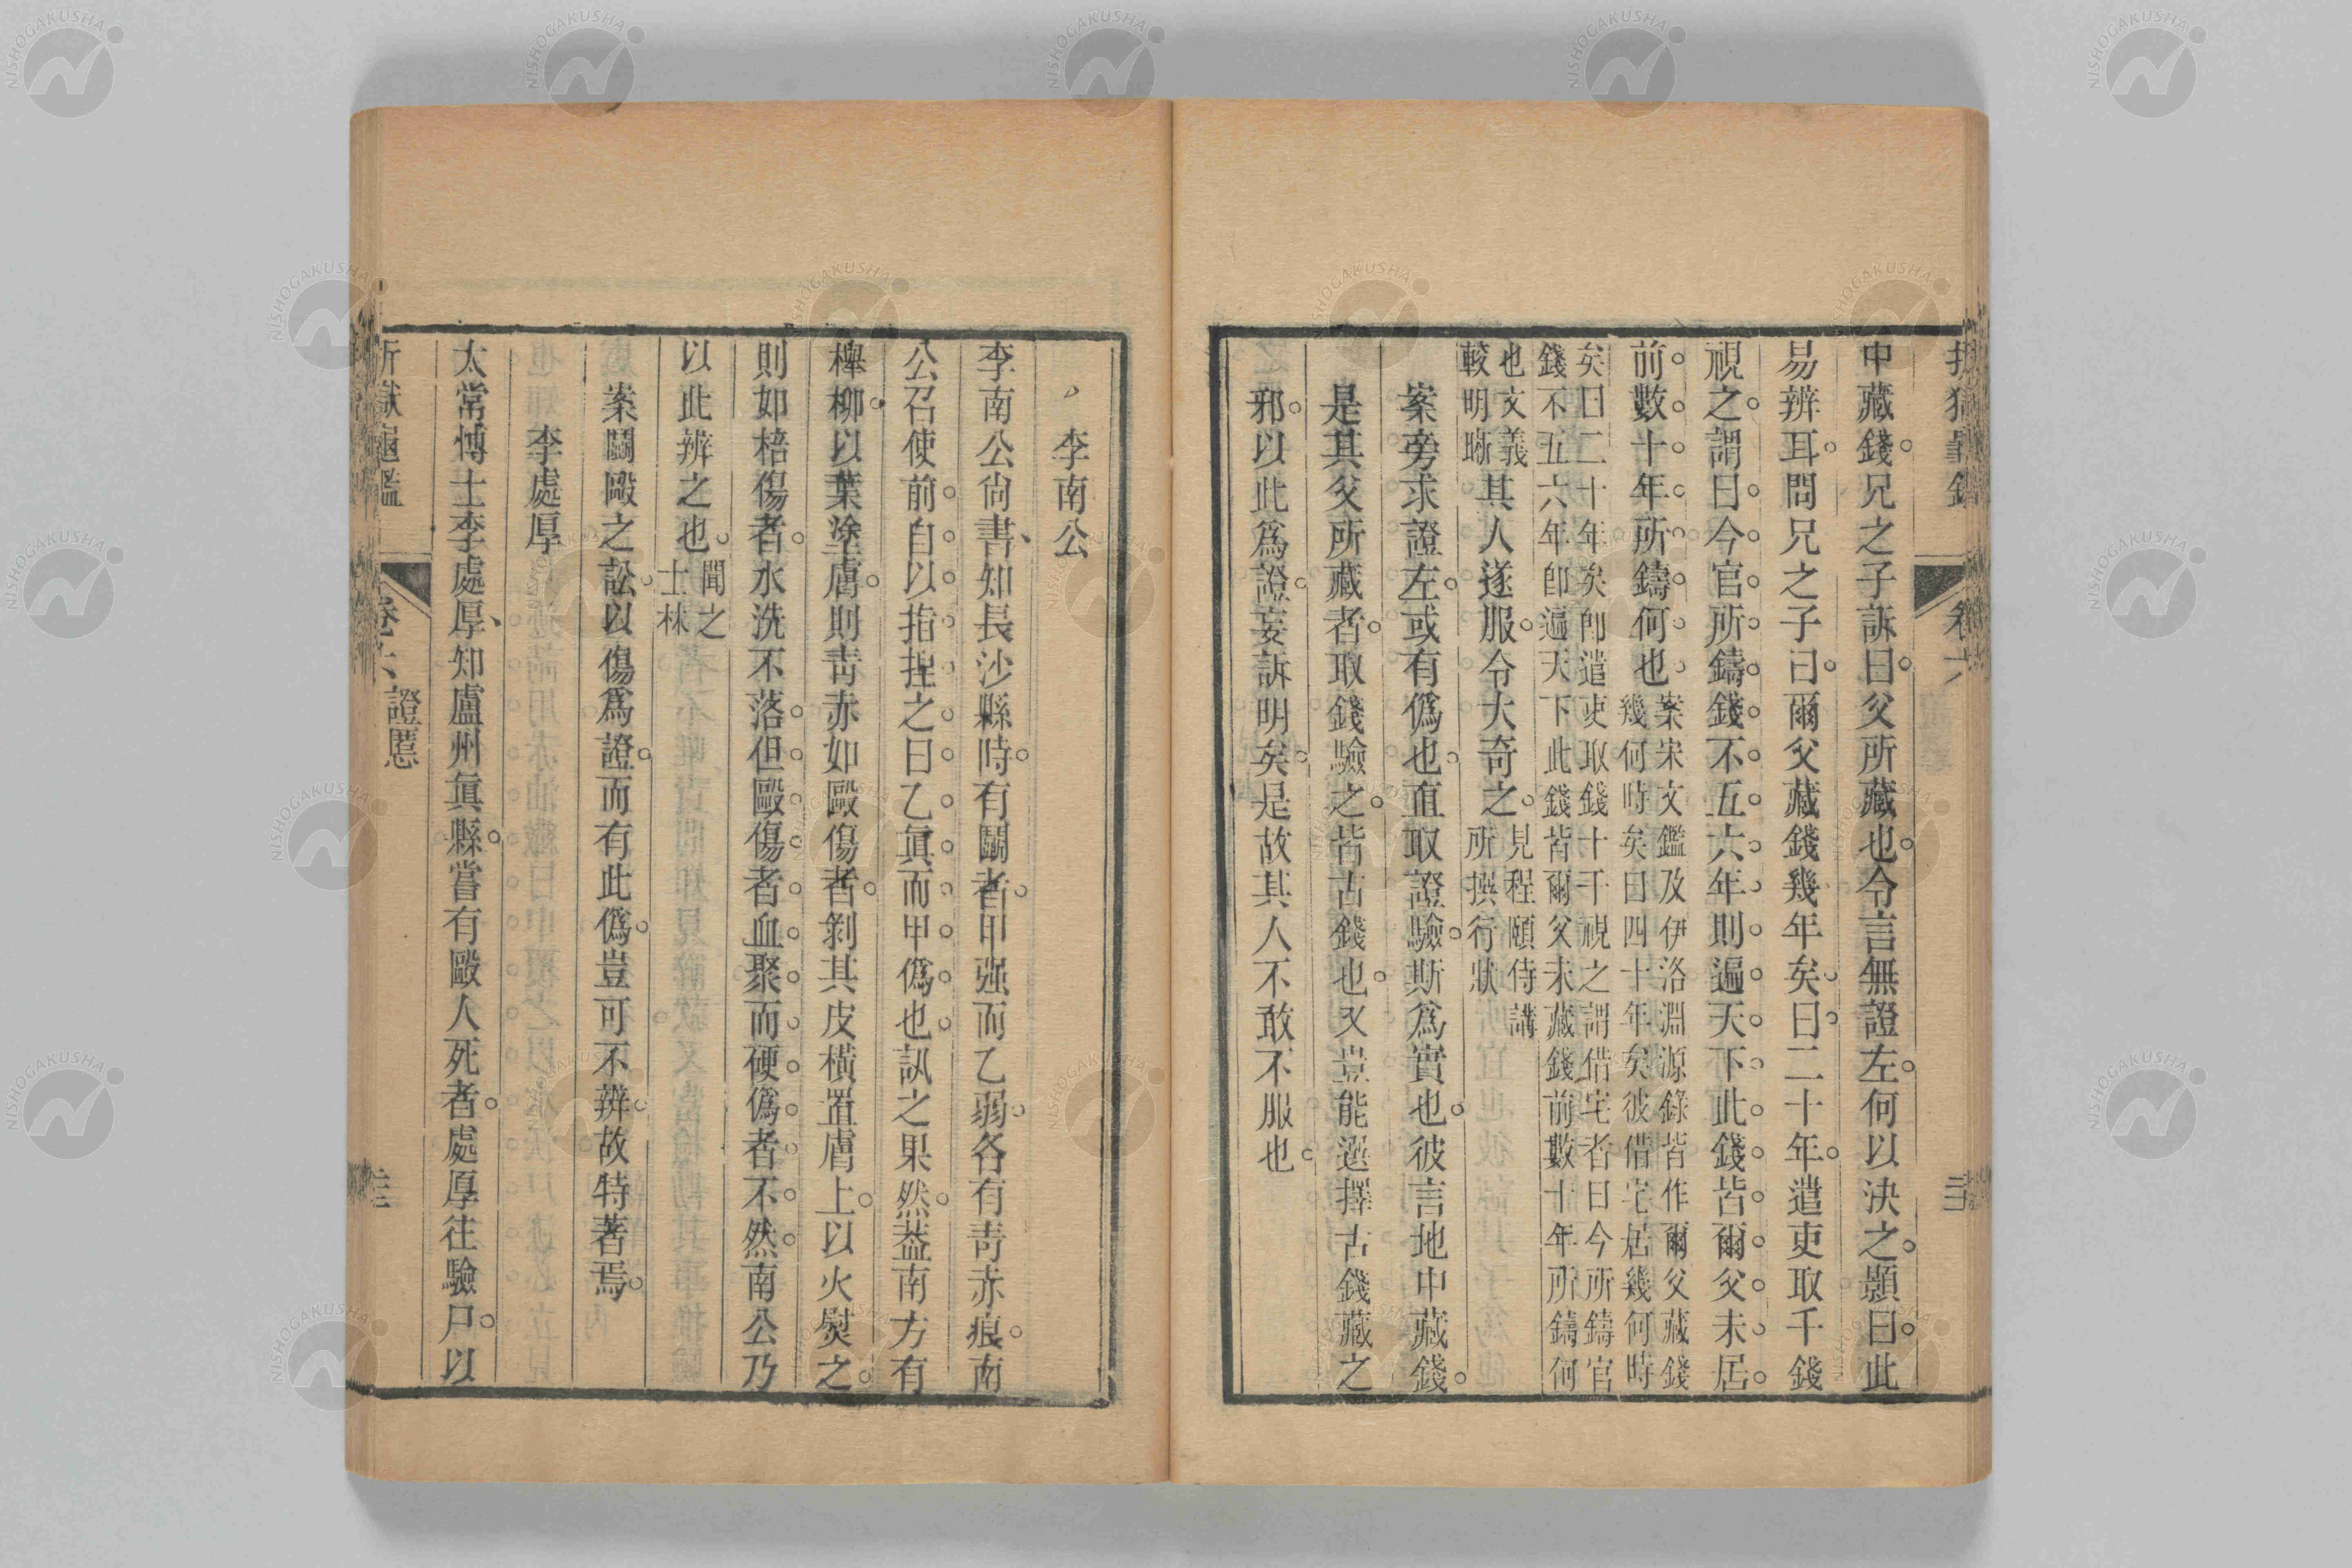 中藏錢。兄之子訴曰。父所藏也。令言無證左。何以決之。顥曰。此
易辨耳。問兄之子曰。爾父藏錢幾年矣。曰。二十年。遣吏取千錢
視之。謂曰。今官所鑄錢。不五六年。則遍天下。此錢皆爾父未居。
前數十年所鑄。何也。案宋文鑑及伊洛淵源錄皆作爾父藏錢
幾何時矣曰四十年矣彼借宅居幾何時
矣曰二十年矣卽遣吏取錢十千視之謂借宅者曰今所鑄官
錢不五六年卽遍天下此錢皆爾父未藏錢前數十年所鑄何
也文義
較明晰其人遂服。令大奇之。見程頤侍講
所撰行狀
案旁求證左。或有僞也。直取證驗。斯爲實也。彼言地中藏錢。
是其父所藏者。取錢驗之。皆古錢也。又豈能選擇古錢藏之
邪。以此爲證。妄訴明矣。是故其人不敢不服也。
卷六
李南公
李南公尙書、知長沙縣時。有鬭者。甲强而乙弱。各有靑赤痕。南
公召使前。自以指捏之曰。乙眞而甲僞也。訊之果然。蓋南方有
櫸柳。以葉塗膚。則靑赤如毆傷者。剝其皮橫置膚上。以火熨之。
則如棓傷者。水洗不落。但毆傷者血聚而硬。僞者不然。南公乃
以此辨之也。聞之
士林
案鬭毆之訟。以傷爲證。而有此僞。豈可不辨。故特著焉。
李處厚
太常博士李處厚、知廬州眞縣。嘗有毆人死者。處厚往驗尸。以
折獄龜鑑
卷六 證慝
NISHOGAKUSHA